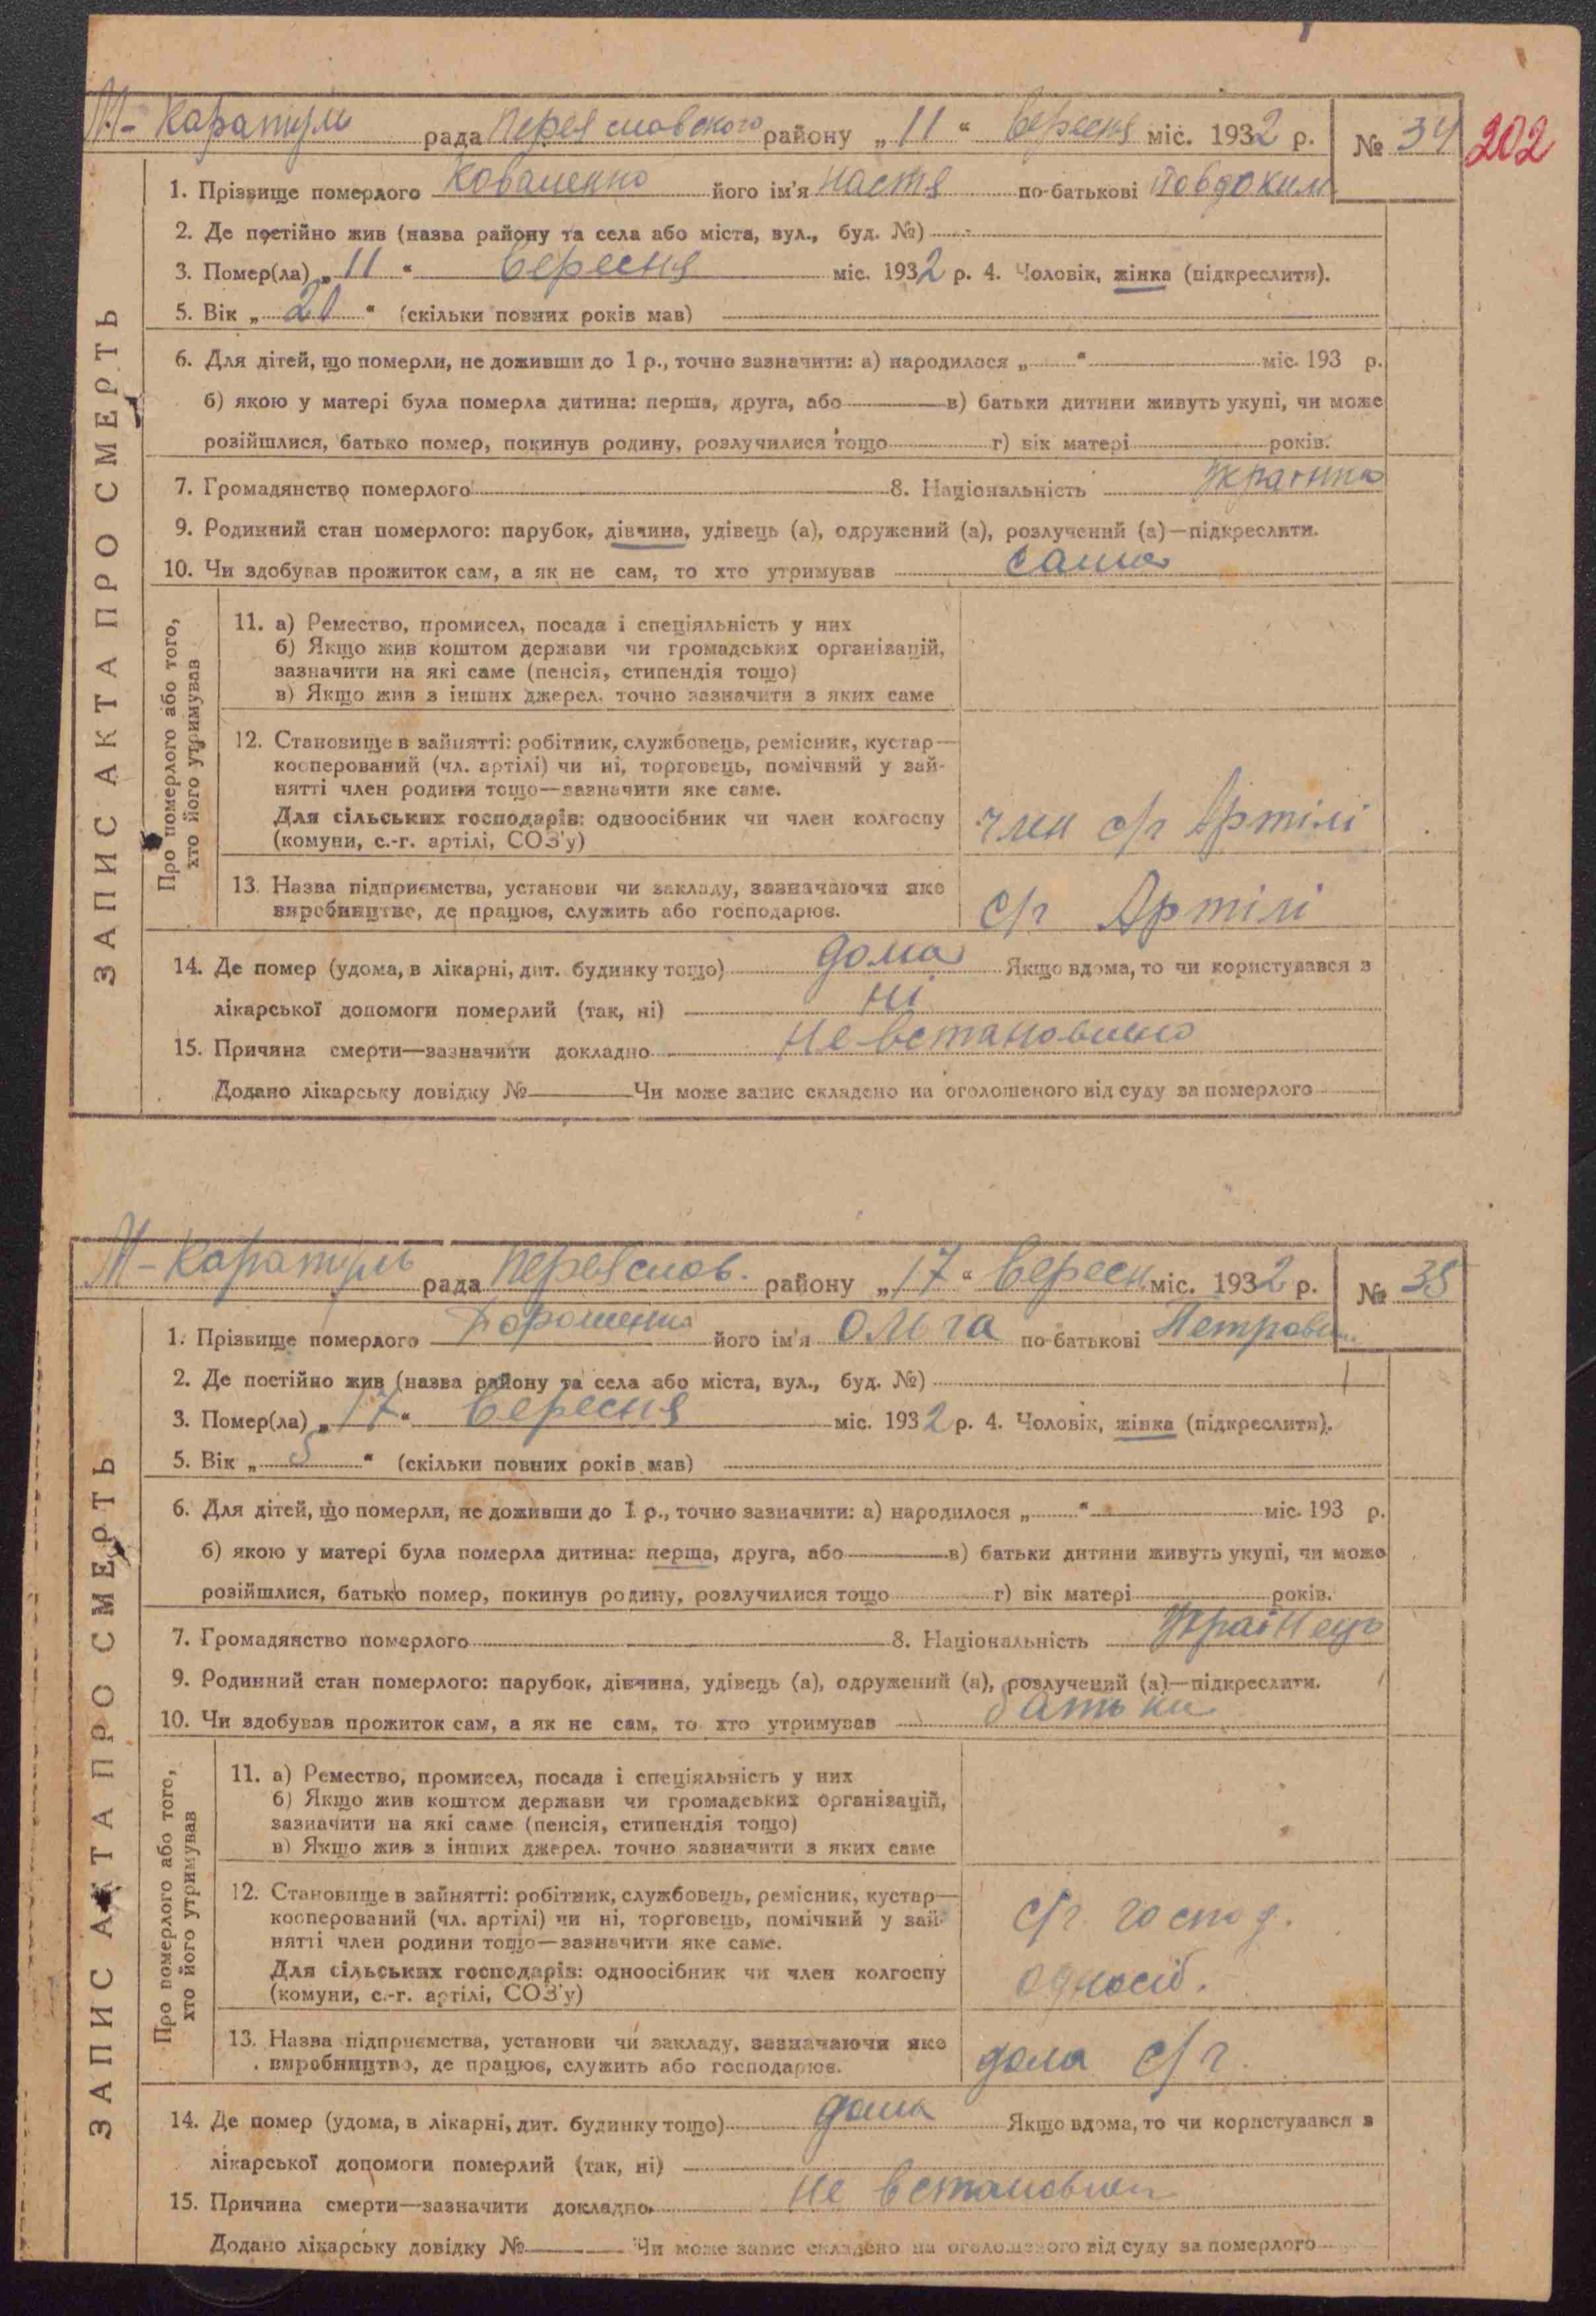 М-Каратуль рада Переяславского району „11“ Вересня міс. 1932 р. № 34 202
1. Прізвище померлого Коваленко його ім'я Настя по-батькові Повдоким
2. Де постійно жив (назва району та села або міста, вул., буд. №)
3. Помер(ла) „11“ Вересня міс. 1932 р. 4. Чоловік, жінка (підкреслити).
5. Вік „20“ (скільки повних років мав)
6. Для дітей, що померли, не доживши до 1 р., точно зазначити: а) народилося „ “ міс. 193 р.
б) якою у матері була померла дитина: перша, друга, або в) батьки дитини живуть укупі, чи може
розійшлися, батько помер, покинув родину, розлучилися тощо г) вік матері років.
7. Громадянство померлого 8. Національність Українка
9. Родинний стан померлого: парубок, дівчина, удівець (а), одружений (а), розлучений (а)—підкреслити.
10. Чи здобував прожиток сам, а як не сам, то хто утримував сама
ЗАПИС АКТА ПРО СМЕРТЬ
Про померлого або того,
хто його утримував
11. а) Ремество, промисел, посада і спеціяльність у них
б) Якщо жив коштом держави чи громадських організацій,
зазначити на які саме (пенсія, стипендія тощо)
в) Якщо жив з інших джерел, точно зазначити з яких саме
12. Становище в зайнятті: робітник, службовець, ремісник, кустар—
косперований (чл. артілі) чи ні, торговець, помічний у зай-
нятті член родини тощо—зазначити яке саме.
Для сільських господарів: одноосібник чи член колгоспу
(комуни, с.-г. артілі, СОЗ'у)
член с/г Артілі
13. Назва підприємства, установи чи закладу, зазначаючи яке
виробництво, де працює, служить або господарює.
с/г Артілі
14. Де помер (удома, в лікарні, дит. будинку тощо) дома Якщо вдома, то чи користувався з
лікарської допомоги померлий (так, ні) ні
15. Причина смерти—зазначити докладно не встановлено
Додано лікарську довідку № Чи може запис складено на оголошеного від суду за померлого
М-Каратуль рада Переяслов. району „17“ Вересн міс. 1932 р. № 35
1. Прізвище померлого Дорошенко його ім'я Ольга по-батькові Петровн
2. Де постійно жив (назва району та села або міста, вул., буд. №)
3. Помер(ла) „17“ Вересня міс. 1932 р. 4. Чоловік, жінка (підкреслити).
5. Вік „5“ (скільки повних років мав)
6. Для дітей, що померли, не доживши до 1 р., точно зазначити: а) народилося „ “ міс. 193 р.
б) якою у матері була померла дитина: перша, друга, або в) батьки дитини живуть укупі, чи може
розійшлися, батько помер, покинув родину, розлучилися тощо г) вік матері років.
7. Громадянство померлого 8. Національність Українець
9. Родинний стан померлого: парубок, дівчина, удівець (а), одружений (а), розлучений (а)—підкреслити.
10. Чи здобував прожиток сам, а як не сам, то хто утримував батьки
ЗАПИС АКТА ПРО СМЕРТЬ
Про померлого або того,
хто його утримував
11. а) Ремество, промисел, посада і спеціяльність у них
б) Якщо жив коштом держави чи громадських організацій,
зазначити на які саме (пенсія, стипендія тощо)
в) Якщо жив з інших джерел, точно зазначити з яких саме
12. Становище в зайнятті: робітник, службовець, ремісник, кустар—
косперований (чл. артілі) чи ні, торговець, помічний у зай-
нятті член родини тощо—зазначити яке саме.
Для сільських господарів: одноосібник чи член колгоспу
(комуни, с.-г. артілі, СОЗ'у)
с/г. господ.
односіб.
13. Назва підприємства, установи чи закладу, зазначаючи яке
виробництво, де працює, служить або господарює.
дома с/г.
14. Де помер (удома, в лікарні, дит. будинку тощо) дома Якщо вдома, то чи користувався з
лікарської допомоги померлий (так, ні)
15. Причина смерти—зазначити докладно не встановлен
Додано лікарську довідку № Чи може запис складено на оголошеного від суду за померлого